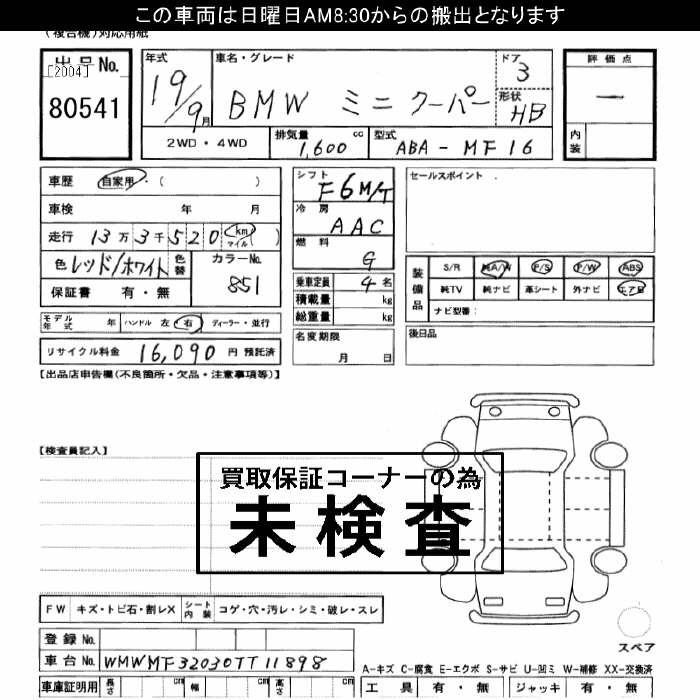 この車両は日曜日AM8:30からの搬出となります
(複合機)対応用紙
出品No.
[2004]
80541
年式
19/9月
車名・グレード
BMW ミニ クーパー
ドア
3
形状
HB
評価点
ー
内装
2WD・4WD
排気量
1,600 cc
型式
ABA-MF16
車歴 自家用・( )
車検 年 月
走行 13万3千520 (km マイル)
色 レッド/ホワイト 色替
カラーNo.
851
保証書 有・無
モデル年式 年 ハンドル 左 右 ディーラー・並行
リサイクル料金 16,090 円 預託済
シフト
F6M/T
冷房
AAC
燃料
G
乗車定員 4 名
積載量 kg
総重量 kg
名変期限
月 日
セールスポイント
装備品
S/R 純A/W P/S P/W ABS
純TV 純ナビ 革シート 外ナビ エアB
ナビ型番:
後日品
【出品店申告欄(不良箇所・欠品・注意事項等)】
【検査員記入】
買取保証コーナーの為
未検査
FW キズ・トビ石・割レX シート内装 コゲ・穴・汚レ・シミ・破レ・スレ
スペア
登録No.
車台No. WMWMF32030TT11898
A-キズ C-腐食 E-エクボ S-サビ U-凹ミ W-補修 XX-交換済
車庫証明用 長さ cm 幅 cm 高さ cm
工具 有・無 ジャッキ 有・無